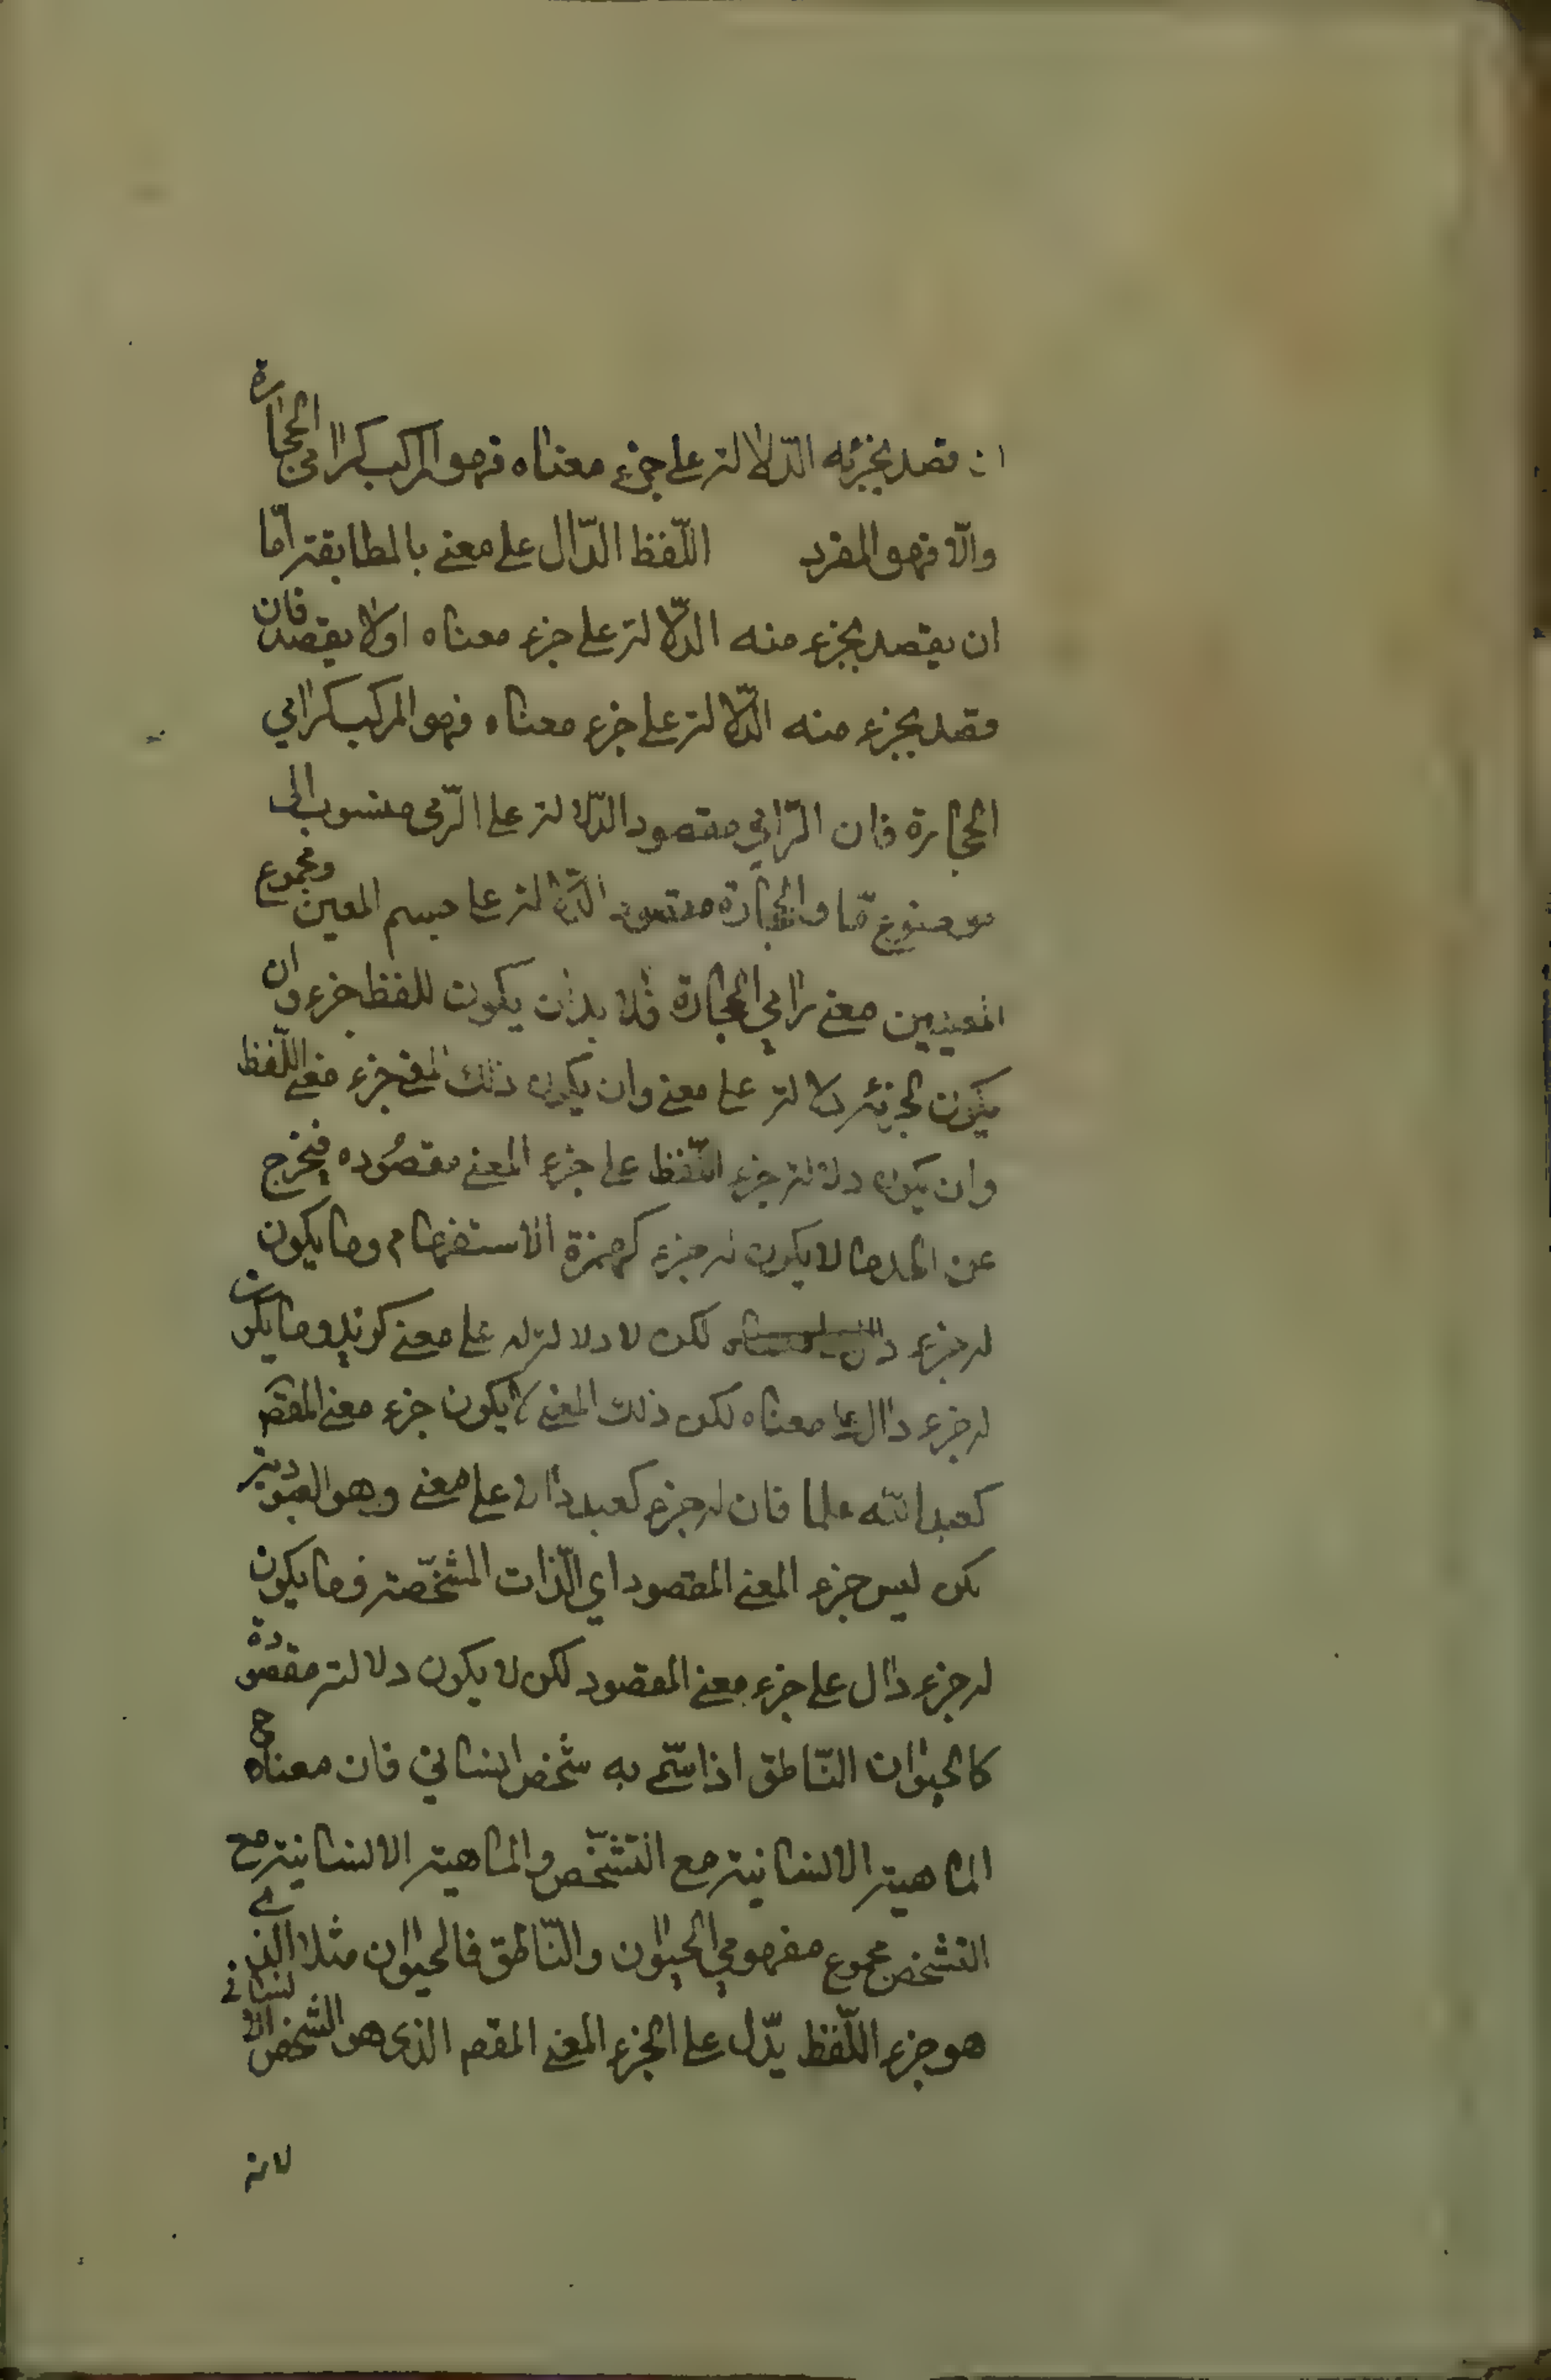 ان قصد بجزئه الدّلالة على جزء معناه فهو المركب كرامى الحجارة
والّا فهو المفرد اللّفظ الدّال على معنى بالمطابقة امّا
ان يقصد بجزء منه الدّلالة على جزء معناه اولا يقصد فان
قصد بجزء منه الدّلالة على جزء معناه فهو المركب كرامي
الحجارة فان الرّامي مقصود الدّلالة على الرّمى منسوب الى
موضوع مّا والحجارة مقصود الدّلالة على جسم المعين ومجموع
المعنيين معنى رامي الحجارة فلا بد ان يكون للفظ جزء وان
يكون لجزئه دلالة على معنى وان يكون ذلك المعنى جزء معنى اللّفظ
وان يكون دلالة جزء اللّفظ على جزء المعنى مقصُوده فيخرج
عن الحد ما لا يكون له جزء كهمزة الاستفهام وما يكون
له جزء لكن لا دلالة له على معنى كزيد وما يكون
له جزء دال على معناه لكن ذلك المعنى لا يكون جزء معنى المقصم
كعبد الله علما فان له جزء كعبد دال على معنى وهو العبودية
لكن ليس جزء المعنى المقصود اي الّذات المشخّصة وما يكون
له جزء دال على جزء معنى المقصود لكن لا يكون دلالته مقصودة
كالحيوان النّاطق اذا سمّى به شخص انساني فان معناه ح
الماهية الانسانية مع التشخّص والماهية الانسانية مع
التشخص مجموع مفهومي الحيوان والنّاطق فالحيوان مثلا الذي
هو جزء اللّفظ يدّل على الجزء المعنى المقصم الذى هو الشخص الانسانى
لانه